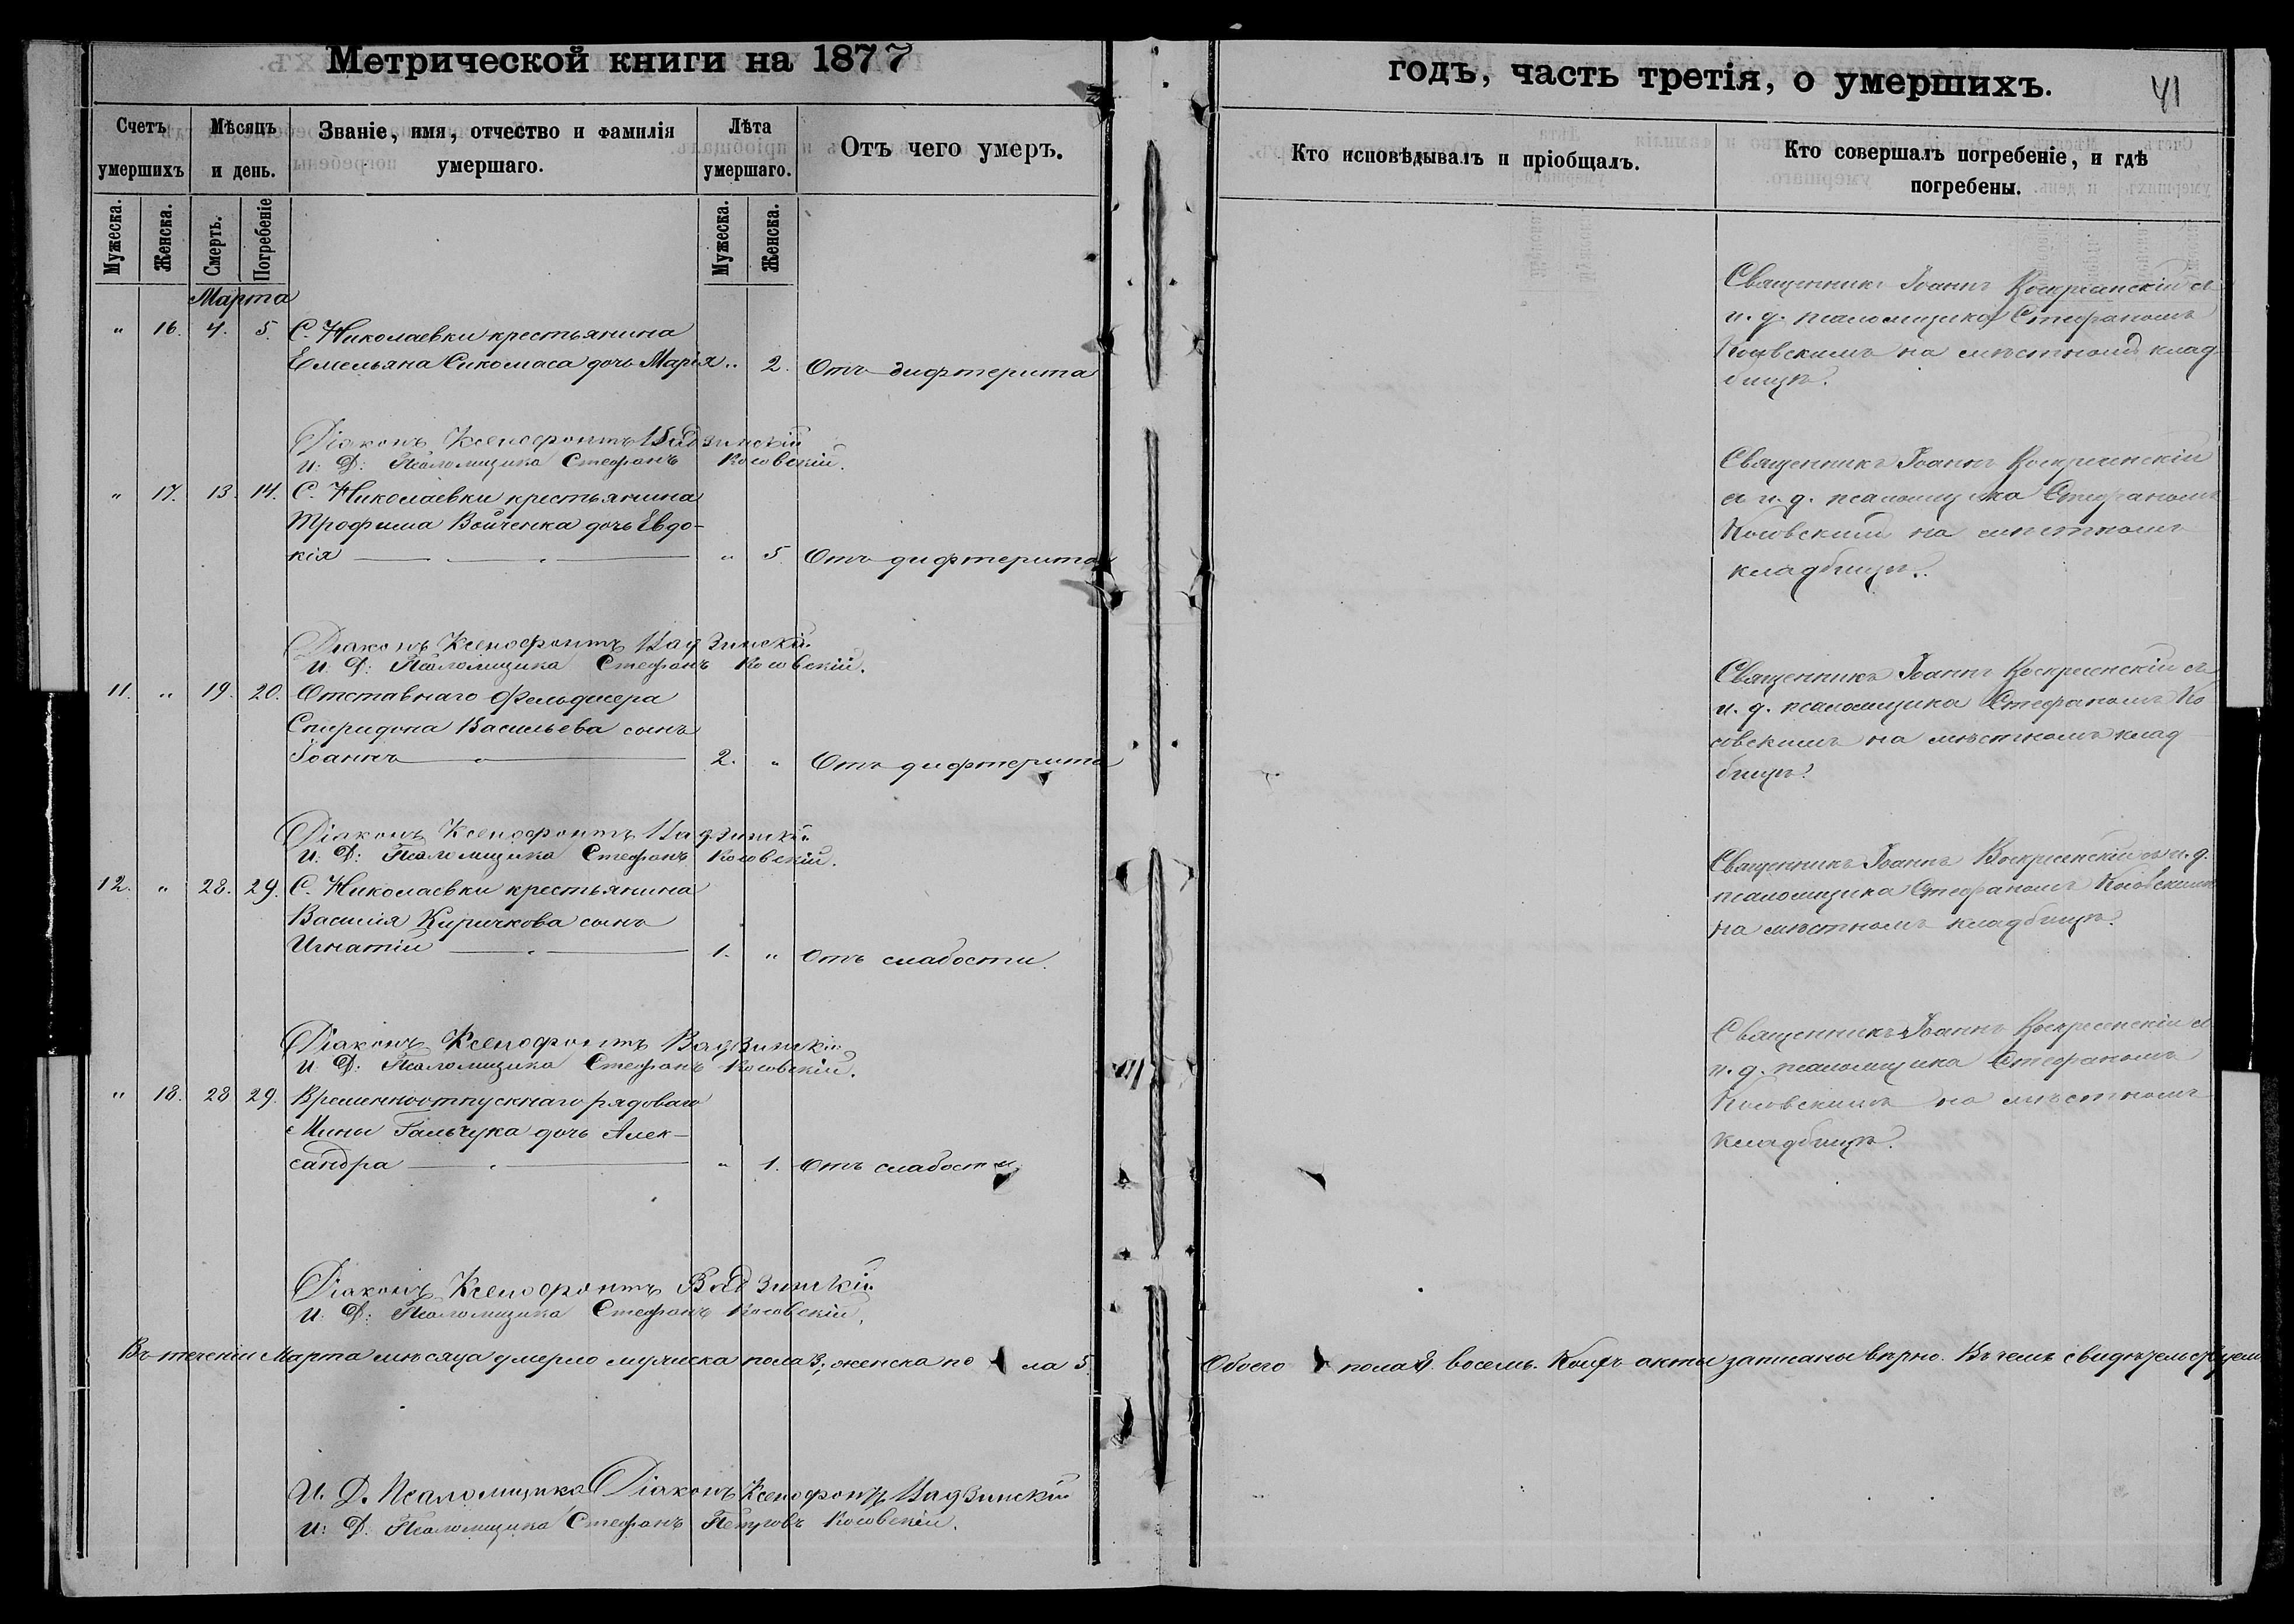 Метрической книги на 1877
годъ, часть третія, о умершихъ.
41
Счетъ умершихъ
Мѣсяцъ и день.
Званіе, имя, отчество и фамилія умершаго.
Лѣта умершаго.
Отъ чего умеръ.
Кто исповѣдывалъ и пріобщалъ.
Кто совершалъ погребеніе, и гдѣ погребены.
Мужеска.
Женска.
Смерть.
Погребеніе
Мужеска.
Женска.
Марта
" 16. 4. 5. С. Николаевки крестьянина
Емельяна Сикомаса дочь Марія " 2. Отъ дифтерита
Священникъ Іоаннъ Воскресенскій съ
и. д. псаломщика Стефаномъ
Косовскимъ на мѣстномъ клад-
бищѣ.
Діаконъ Ксенофонтъ Вадзинскій
И. Д. Псаломщика Стефанъ Косовскій.
" 17. 13. 14. С. Николаевки крестьянина
Трофима Войченка дочь Евдо-
кія " 5 Отъ дифтерита
Священникъ Іоаннъ Воскресенскій
съ и. д. псаломщика Стефаномъ
Косовскимъ на мѣстномъ
кладбищѣ.
Діаконъ Ксенофонтъ Вадзинскій
И. Д: Псаломщика Стефанъ Косовскій.
11. " 19. 20. Отставнаго Фельдшера
Спиридона Васильева сынъ
Іоаннъ 2. " Отъ дифтерита
Священникъ Іоаннъ Воскресенскій съ
и. д. псаломщика Стефаномъ Ко
совскимъ на мѣстномъ клад
бищѣ.
Діаконъ Ксенофонтъ Вадзинскій
И. Д: Псаломщика Стефанъ Косовскій.
12. " 28. 29. С. Николаевки крестьянина
Василія Киричкова сынъ
Игнатій 1. " Отъ слабости.
Священникъ Іоаннъ Воскресенскій съ и. д.
псаломщика Стефаномъ Косовскимъ
на мѣстномъ кладбищѣ.
Діаконъ Ксенофонтъ Вадзинскій
И. Д. Псаломщика Стефанъ Косовскій.
" 18. 28 29. Временноотпускнаго рядоваго
Мины Гальчука дочь Алек-
сандра " 1. Отъ слабости
Священникъ Іоаннъ Воскресенскій съ
и. д. псаломщика Стефаномъ
Косовскимъ на мѣстномъ
кладбищѣ.
Діаконъ Ксенофонтъ Вадзинскій
И. Д: Псаломщика Стефанъ Косовскій.
Въ теченіи Марта мѣсяца умерло мужеска пола 3, женска по ла 5. Обоего пола 8. восемь. акты записаны вѣрно. Въ чемъ свидѣтельствуемъ
И. Д. Псаломщика Діаконъ Ксенофонтъ Вадзинскій
И: Д. Псаломщика Стефанъ Петровъ Косовскій.